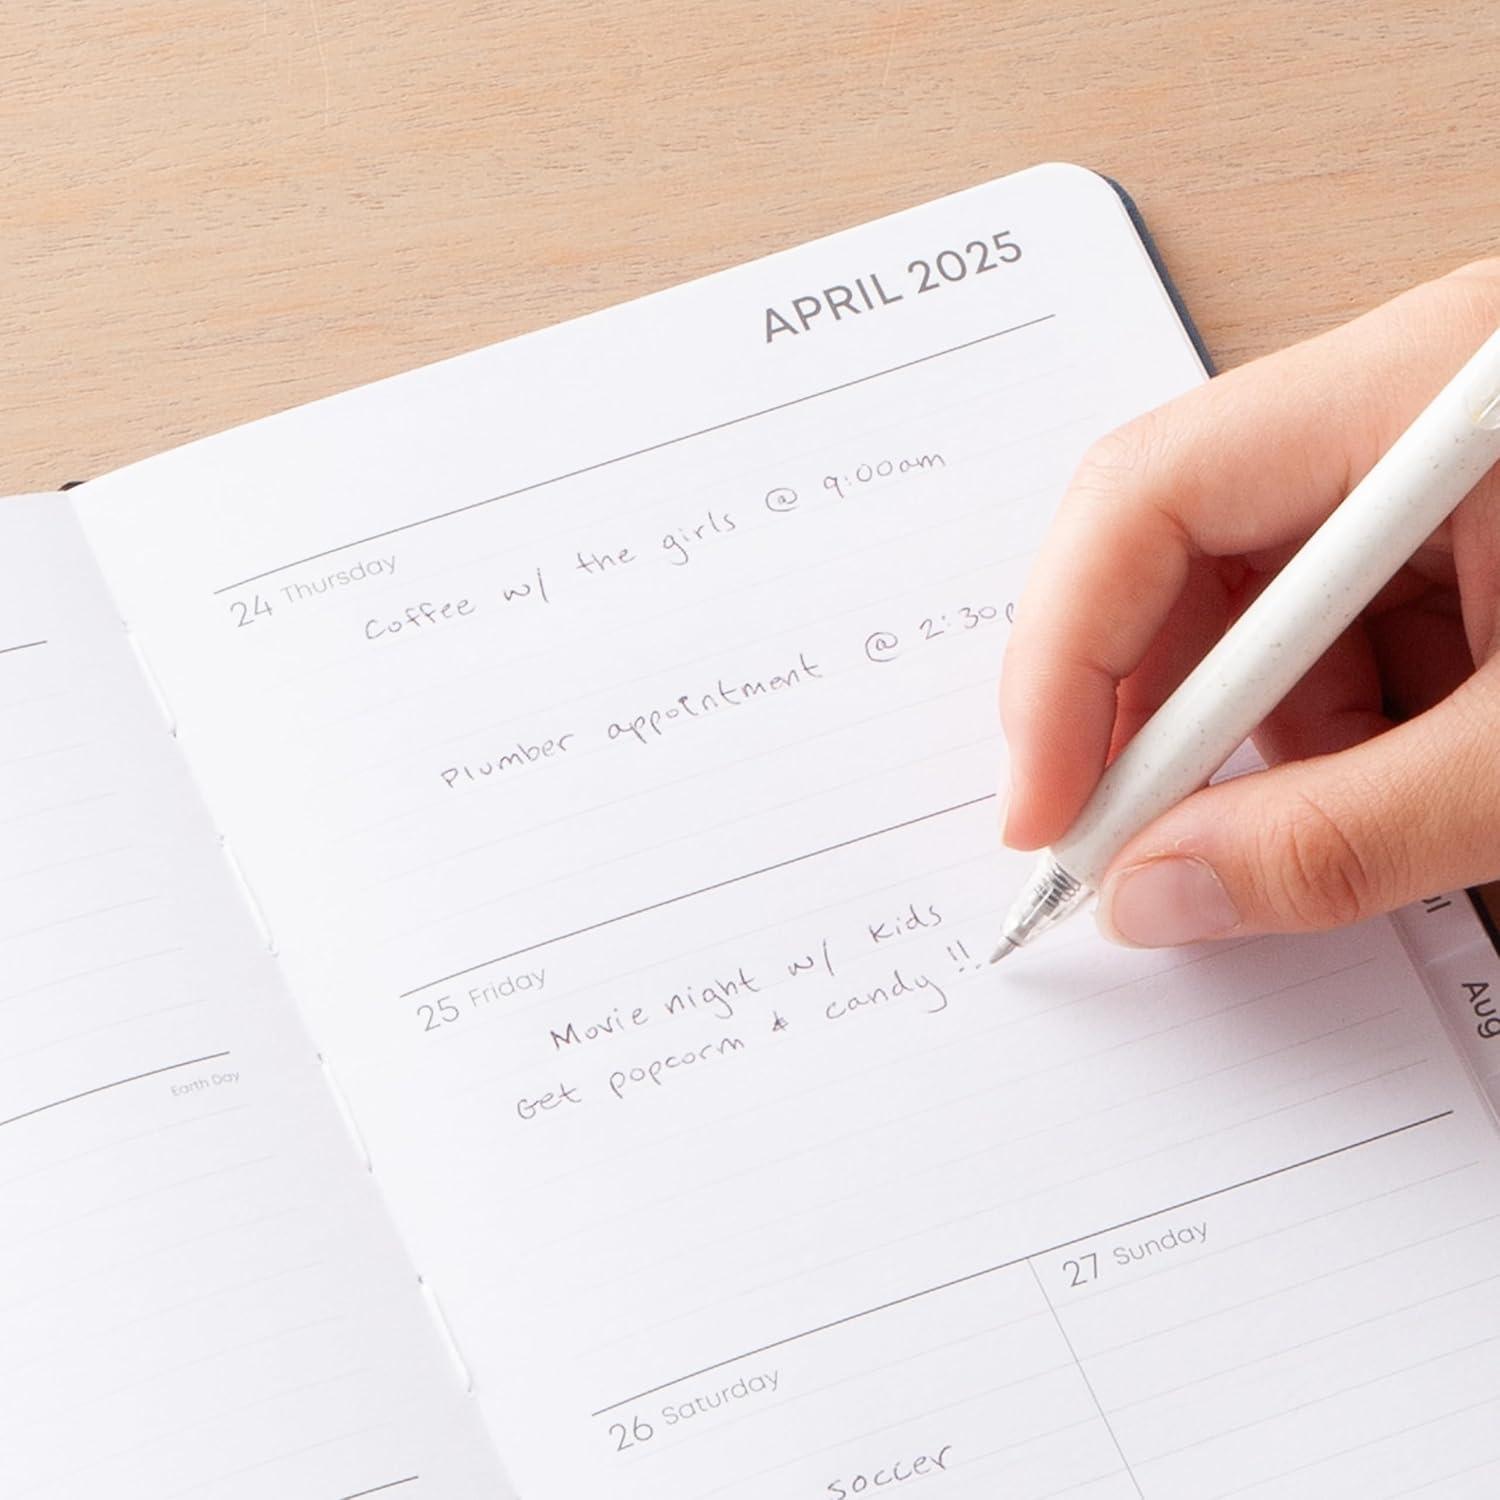 APRIL 2025
24 Thursday
Coffee w/ the girls @ 9:00am
Plumber appointment @ 2:30p
25 Friday
Movie night w/ kids
Get popcorm & candy!!
Earth Day
26 Saturday
soccer
27 Sunday
Aug